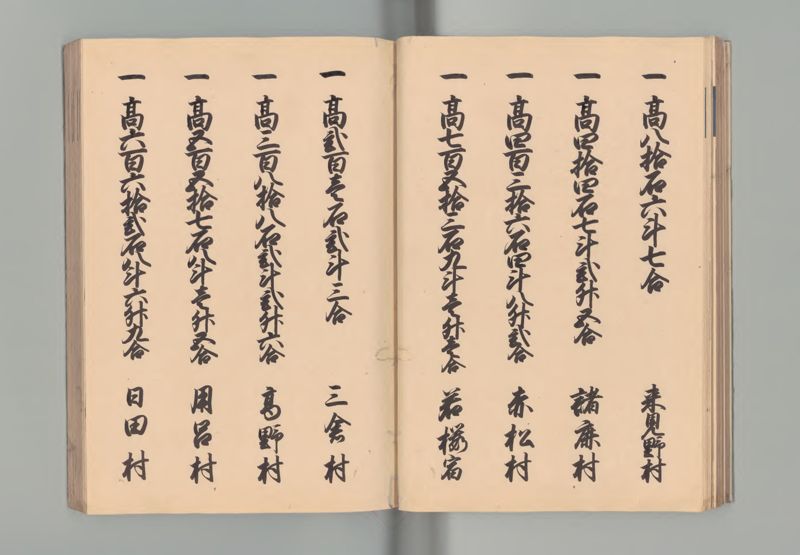 一 高八拾石六斗七合 来見野村
一 高四拾四石七斗弐升五合 諸鹿村
一 高四百三拾六石四斗八升弐合 赤松村
一 高七百五拾三石九斗壱升壱合 若桜宿
一 高弐百壱石弐斗三合 三倉村
一 高三百八拾八石弐斗弐升六合 高野村
一 高五百五拾七石八斗壱升五合 用呂村
一 高六百六拾弐石八斗六升九合 日田村